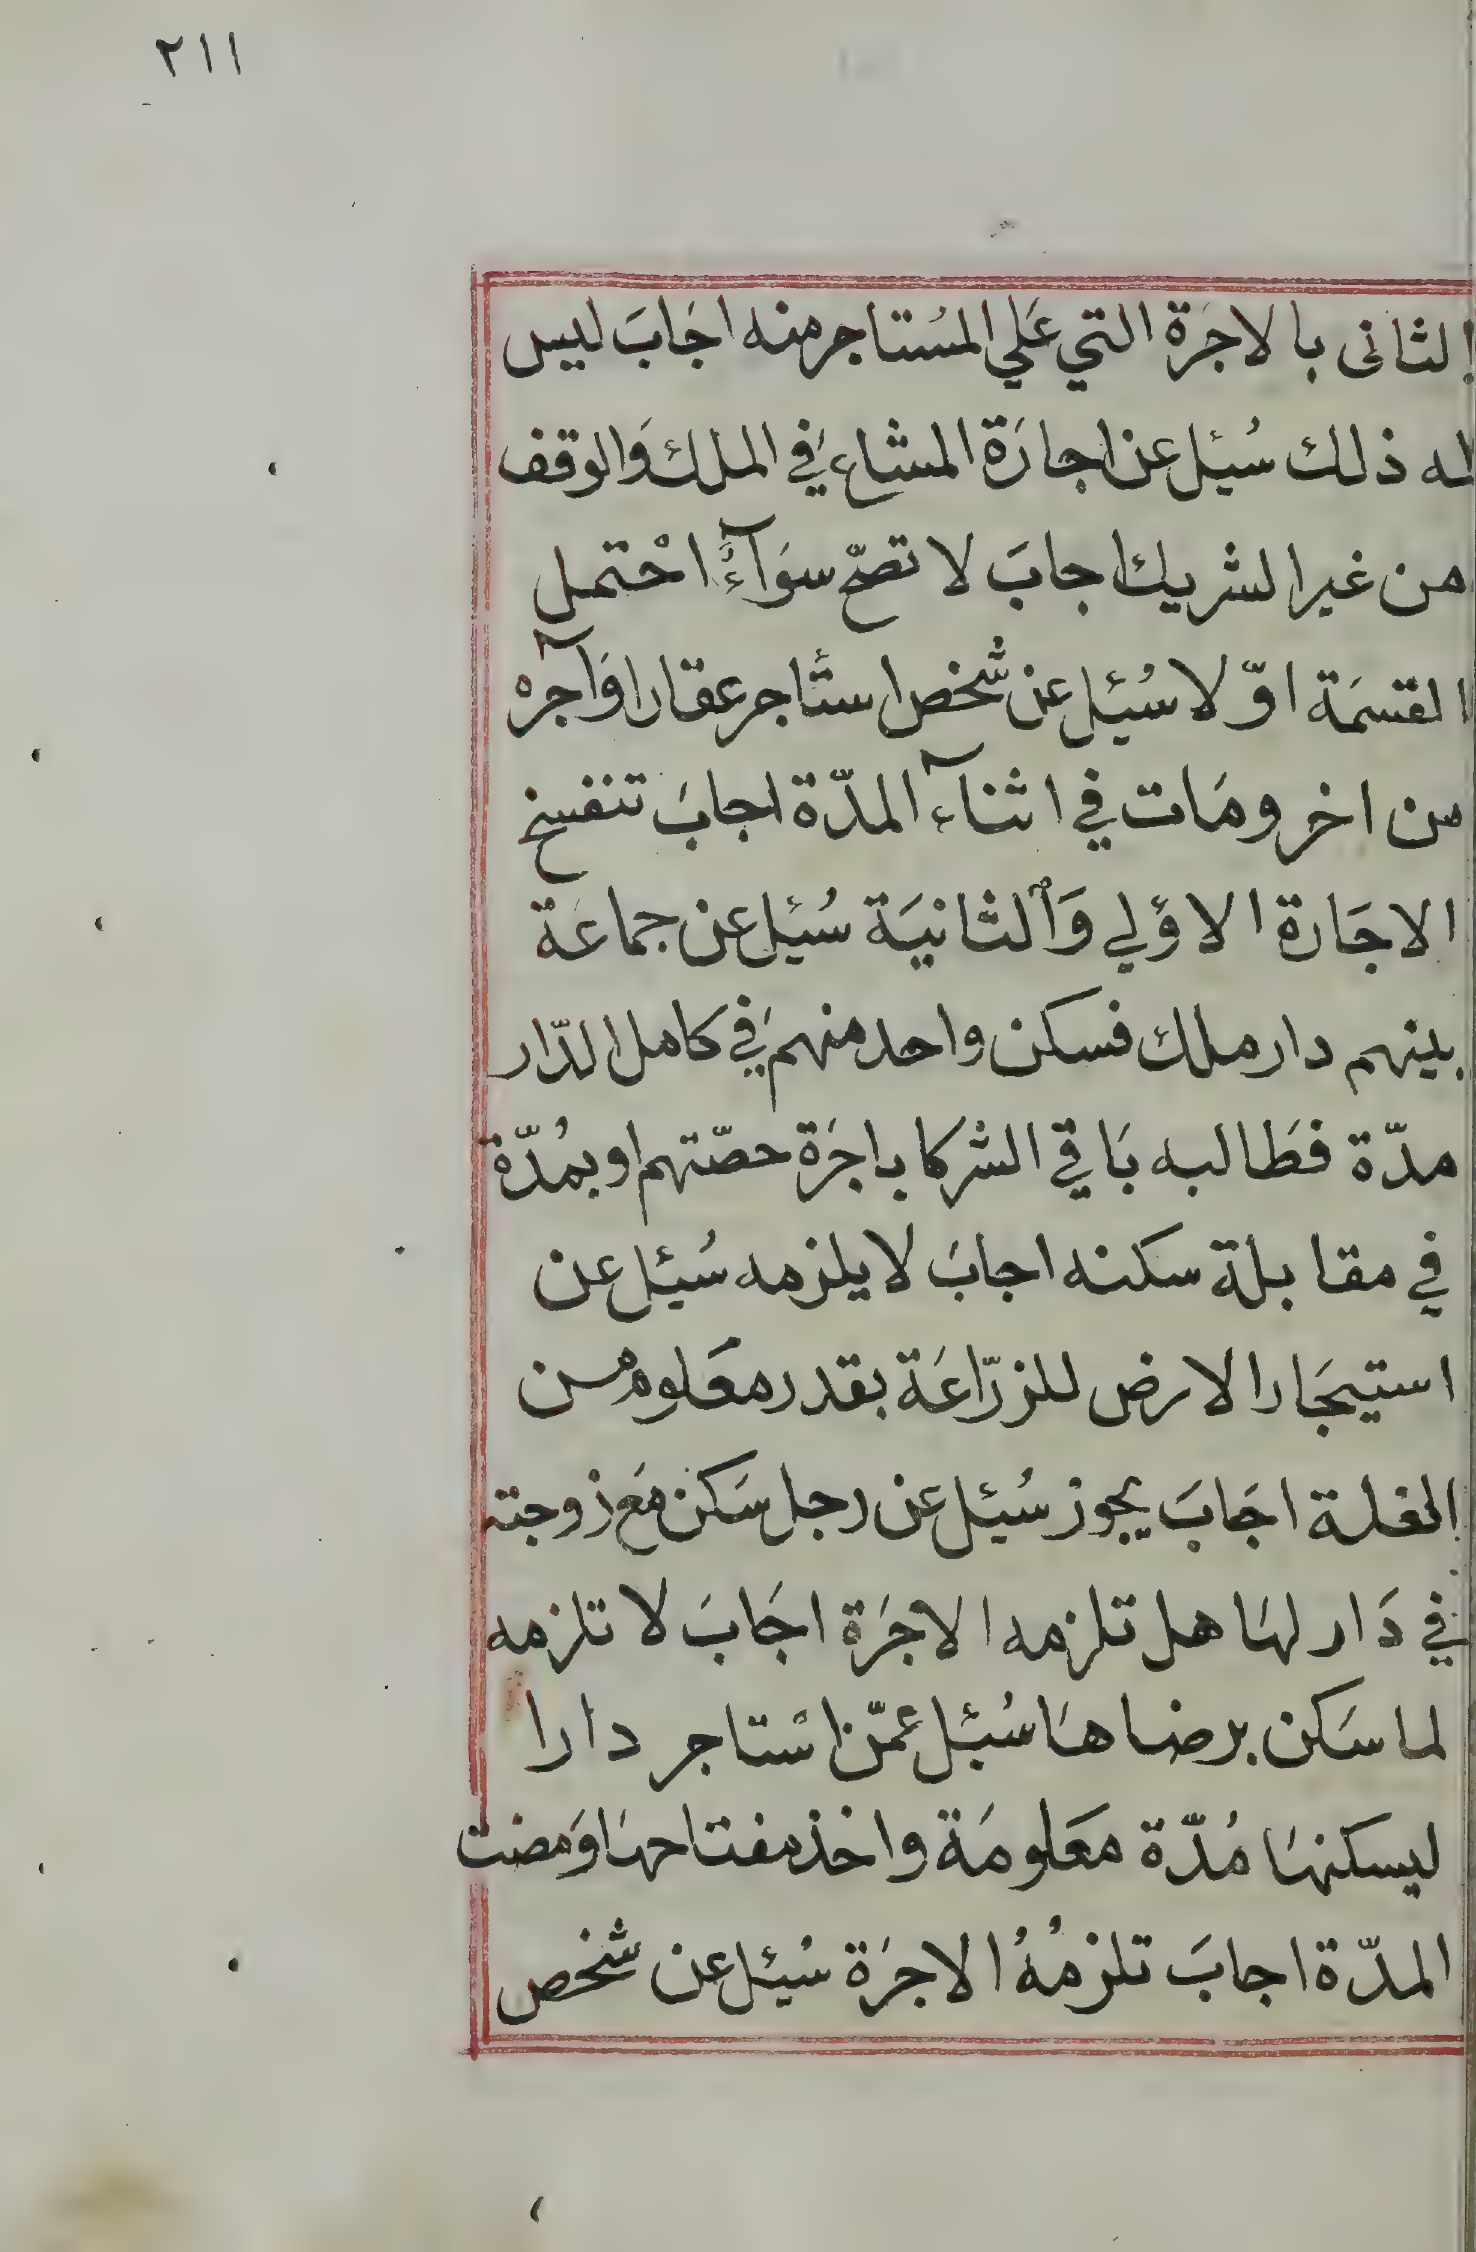 ٢١١
الثانى بالاجَرة التي عَلي المسُتاجرمنه اجَابَ ليس
له ذلك سُئِل عن اجارَة المشاع في الملك وَالوقف
من غير الشريك اجابَ لا تصحّ سوَآءً احْتمل
القسمَة اوّ لا سُئِل عن شُّخص استَأجر عقارا وَآجره
من اخر ومَات في اثنآء المدّة اجابَ تنفسخ
الاجَارة الاؤلي وَالثانيَة سُئِل عن جماعَة
بينهم دار ملك فسكن واحد منهم في كامل الدّار
مدّة فطَالبه بَاقي الشركا باجَرة حصّتهم او بمُدّة
في مقابلة سكنه اجابَ لا يلزمه سُئِل عن
استيجَار الارض للزرّاعَة بقدر معَلوم من
الغلة اجَابَ يجوز سُئِل عن رجل سَكن مَع زوجته
في دَار لهَا هل تلزمه الاجَرة اجَابَ لا تلزمه
لما سَكن برضاهَا سُئِل عمّن استاجر دارا
ليسكنهَا مُدّة معَلومَة واخذ مفتاحهَا وَمضت
المدّة اجابَ تلزمُهُ الاجَرة سُئِل عن شخص